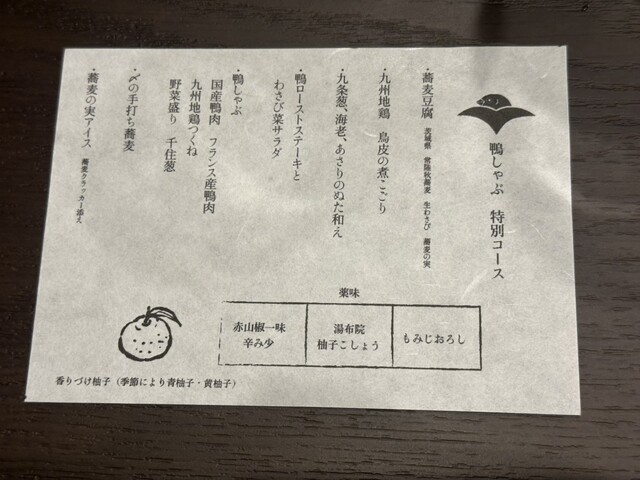 鴨しゃぶ 特別コース
・蕎麦豆腐 茨城県 常陸秋蕎麦 生わさび 蕎麦の実
・九州地鶏 鳥皮の煮こごり
・九条葱、海老、あさりのぬた和え
・鴨ローストステーキと
わさび菜サラダ
・鴨しゃぶ
国産鴨肉 フランス産鴨肉
九州地鶏つくね
野菜盛り 千住葱
・〆の手打ち蕎麦
・蕎麦の実アイス 蕎麦クラッカー添え
薬味
赤山椒一味
辛み少
湯布院
柚子こしょう
もみじおろし
香りづけ柚子（季節により青柚子・黄柚子）